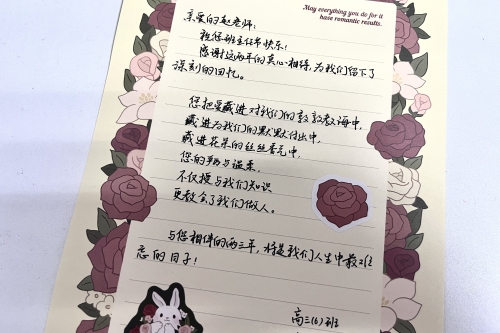 May everything you do for it
have romantic results.
亲爱的赵老师:
祝您班主任节快乐!
感谢这两年的真心相待,为我们留下了
深刻的回忆。
您把爱藏进对我们的敦敦教诲中,
藏进为我们的默默付出中,
藏进花茶的丝丝香气中,
您的 与温柔,
不仅授与我们知识
更教会了我们做人。
与您相伴的两三年,将是我们人生中最难
忘的日子!
高三(6)班